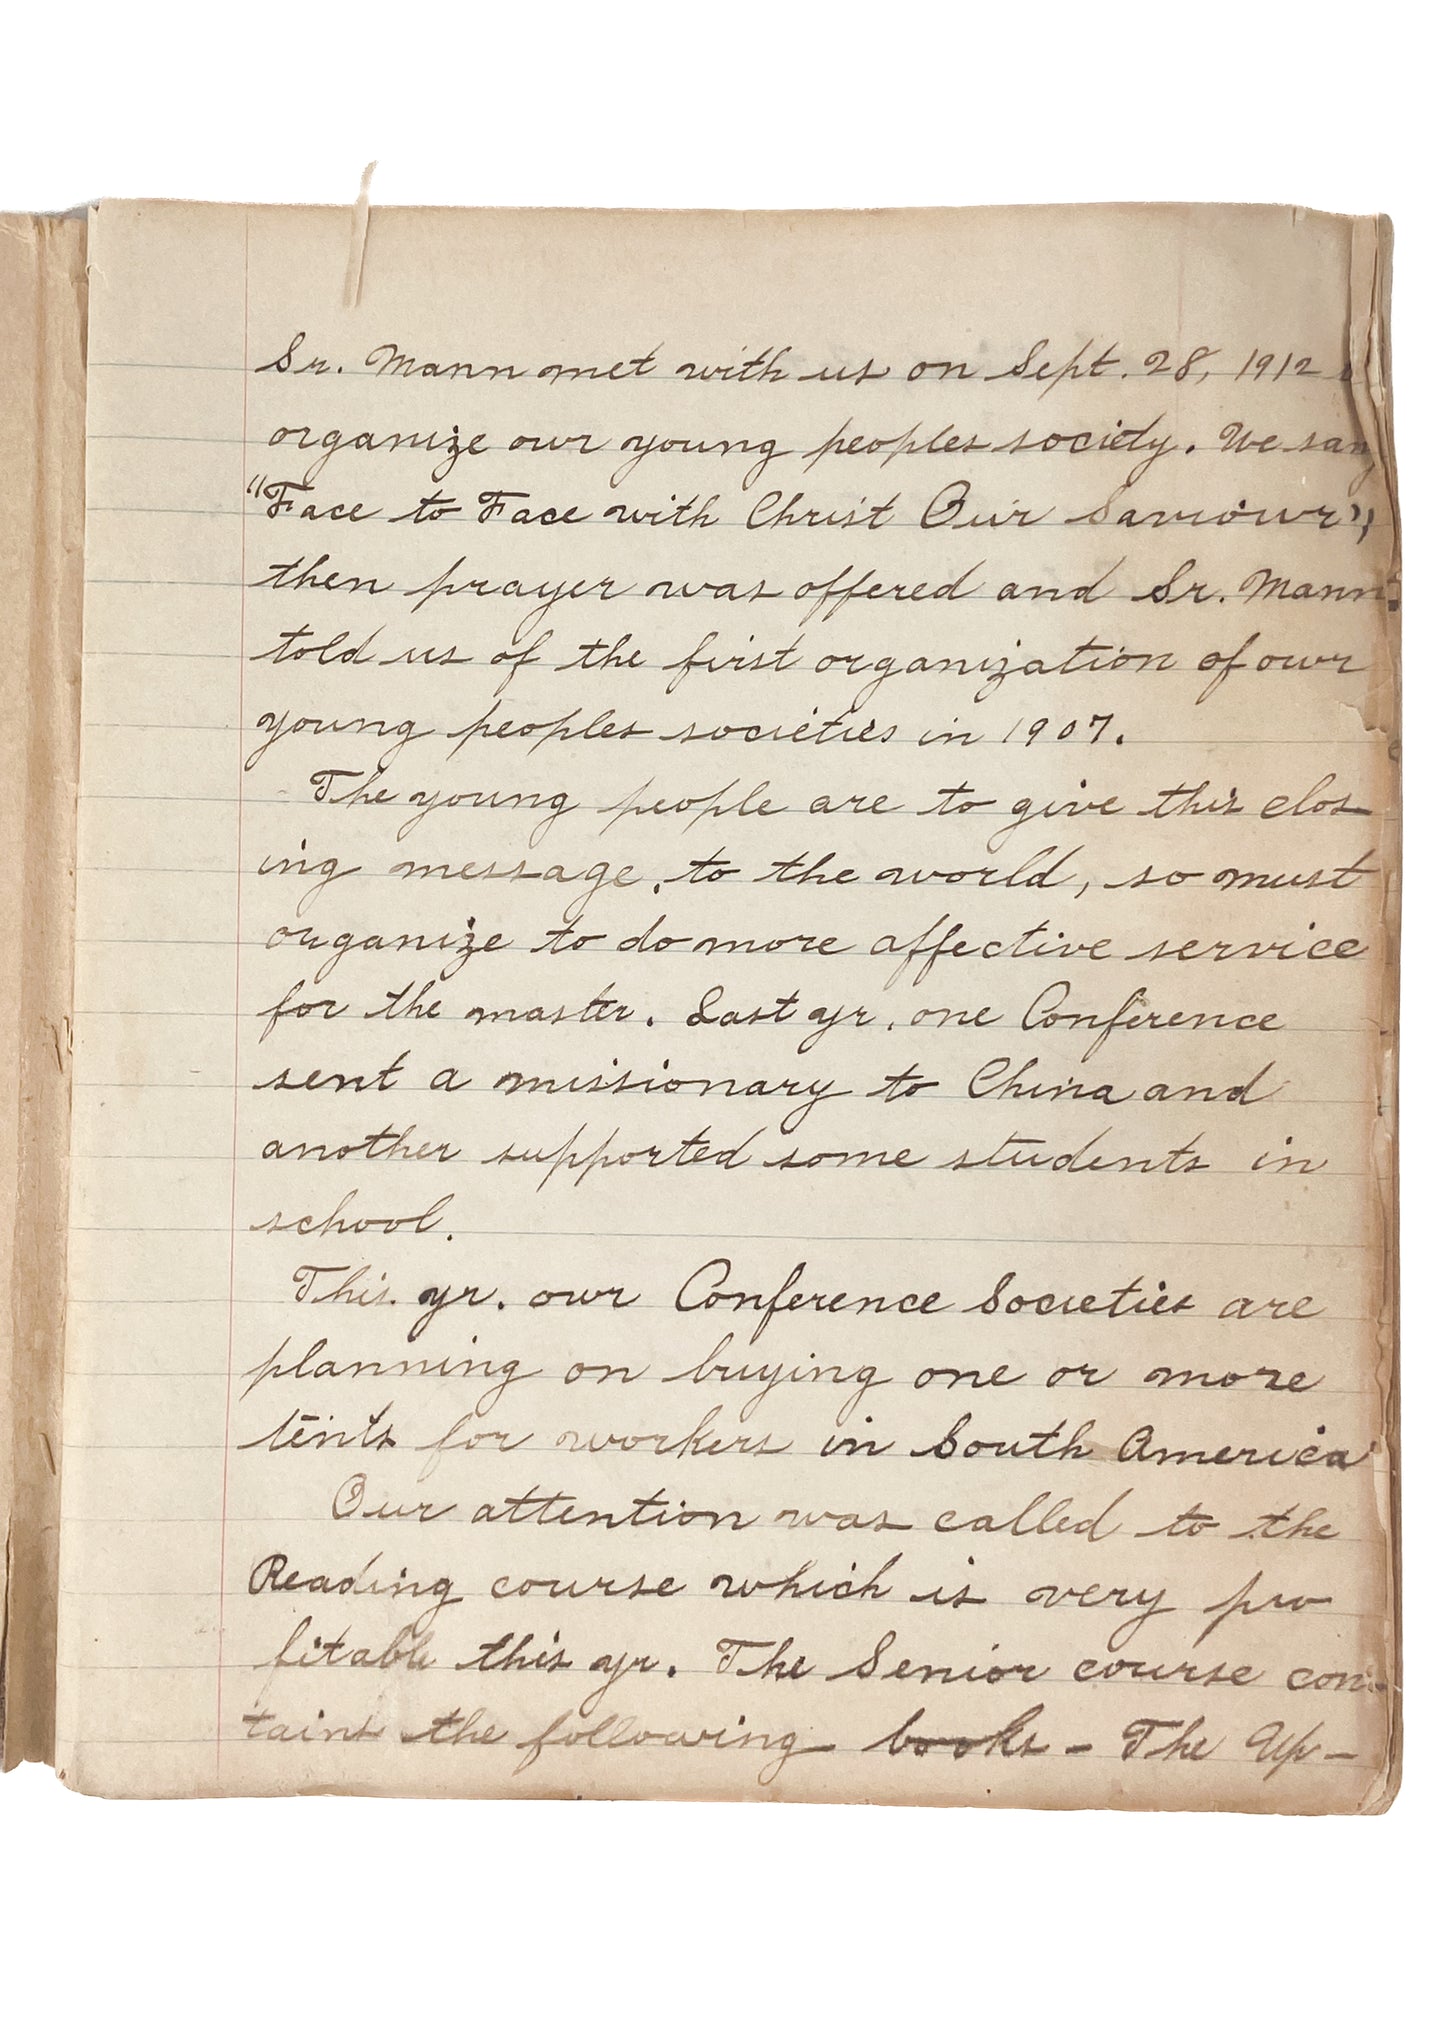 Sr. Mann met with us on Sept. 28, 1912
organize our young peoples society. We sang
"Face to Face with Christ Our Saviour",
then prayer was offered and Sr. Mann
told us of the first organization of our
young peoples societies in 1907.
The young people are to give this clos-
ing message, to the world, so must
organize to do more affective service
for the master. Last yr. one Conference
sent a missionary to China and
another supported some students in
school.
This yr. our Conference Societies are
planning on buying one or more
tents for workers in South America
Our attention was called to the
Reading course which is very pro
fitable this yr. The Senior course con-
tains the following books - The Up-